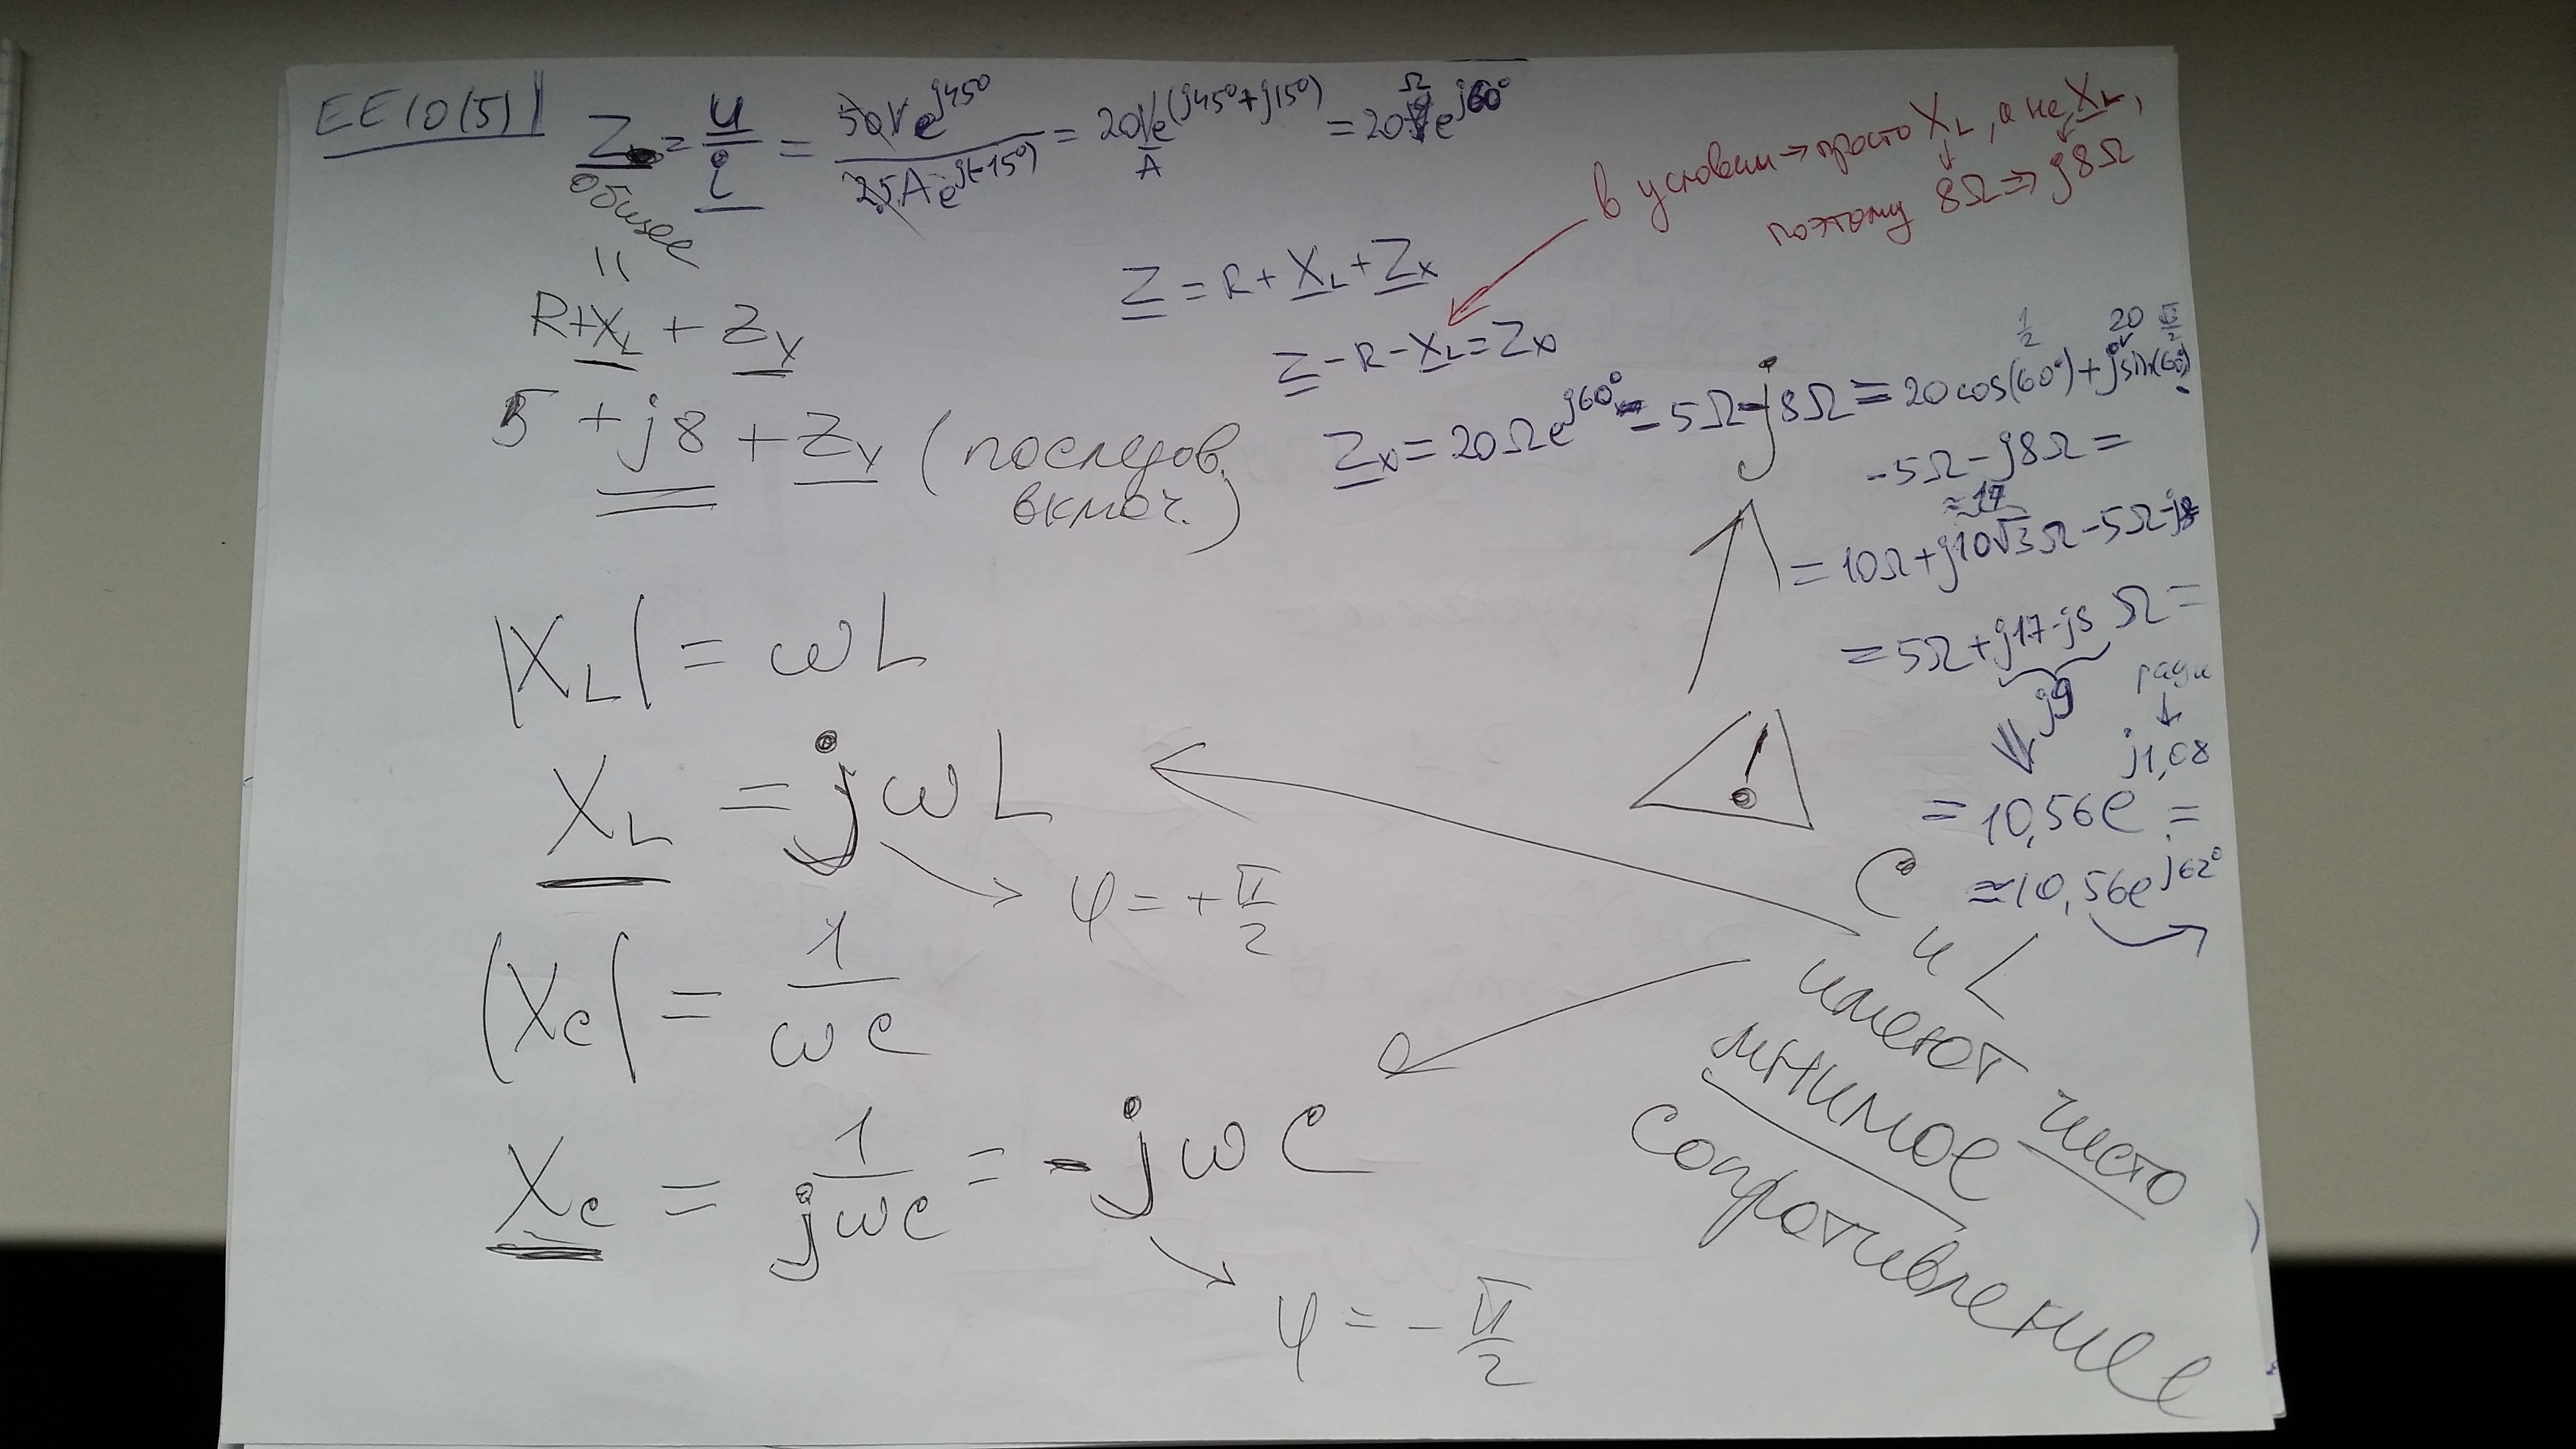 EE10(5)
Z = U / i = 50V e^j45° / 2,5A e^j(-15°) = 20 V/A e^(j45°+j15°) = 20 Ω e^j60°
общее
=
R+X_L + Z_x
5 + j8 + Z_x (последов.
включ.)
в условии → просто X_L, а не X_L,
поэтому 8Ω ⇒ j8Ω
Z = R + X_L + Z_x
Z - R - X_L = Z_x
Z_x = 20Ω e^j60° - 5Ω - j8Ω = 20cos(60°) + j sin(60°)
1/2
20
-5Ω - j8Ω =
≈17
= 10Ω + j10√3Ω - 5Ω - j8
= 5Ω + j17 - j8 Ω =
j9
⇓
↓
j1,08
= 10,56e =
≈ 10,56e^j62°
|X_L| = ωL
X_L = jωL
φ = + π/2
|X_C| = 1/ωC
X_C = 1/jωC = -jωC
φ = - π/2
!
C
и L
имеют чисто
мнимое
сопротивление